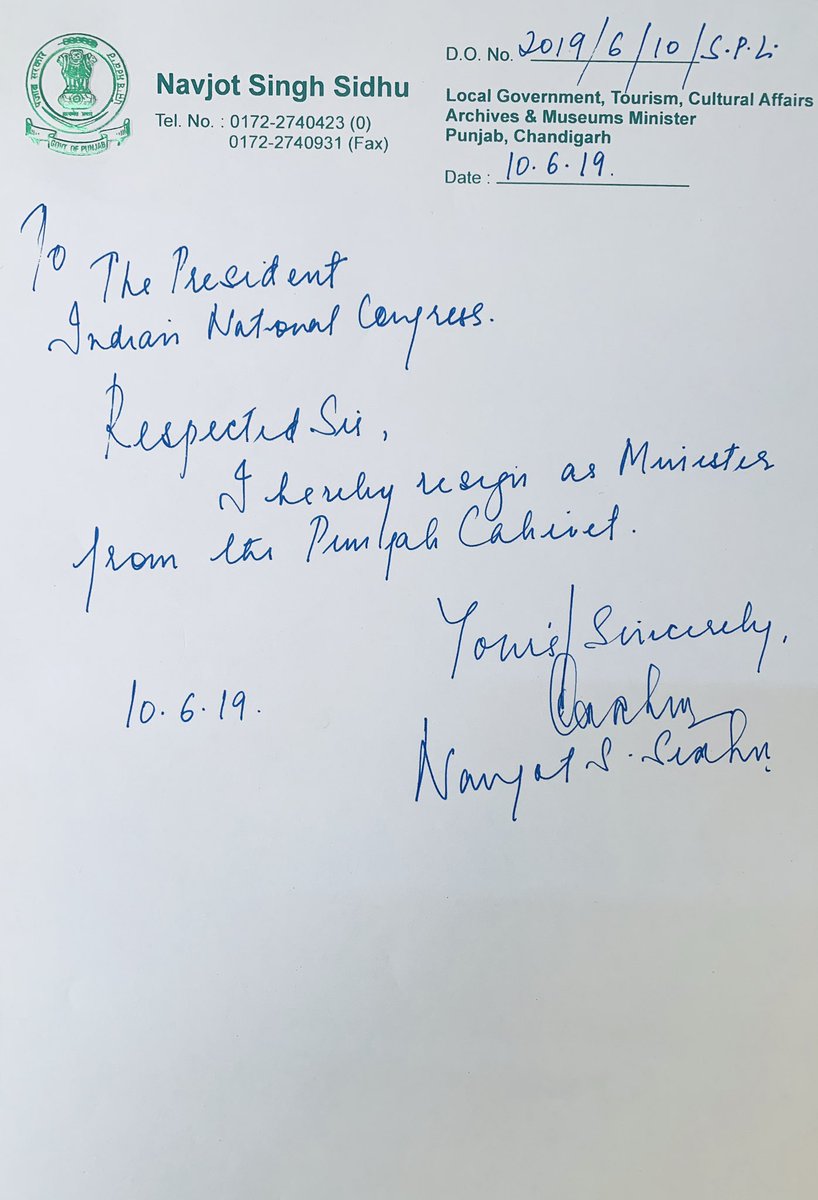 D.O. No. 2019/6/10/S.P.Li
Navjot Singh Sidhu
Tel. No. : 0172-2740423 (0)
0172-2740931 (Fax)
Local Government, Tourism, Cultural Affairs
Archives & Museums Minister
Punjab, Chandigarh
Date : 10.6.19.
GOVT OF PUNJAB
To
The President
Indian National Congress.
Respected Sir,
I hereby resign as Minister
from the Punjab Cabinet.
Yours Sincerely,
10.6.19.
Navjot S. Sidhu